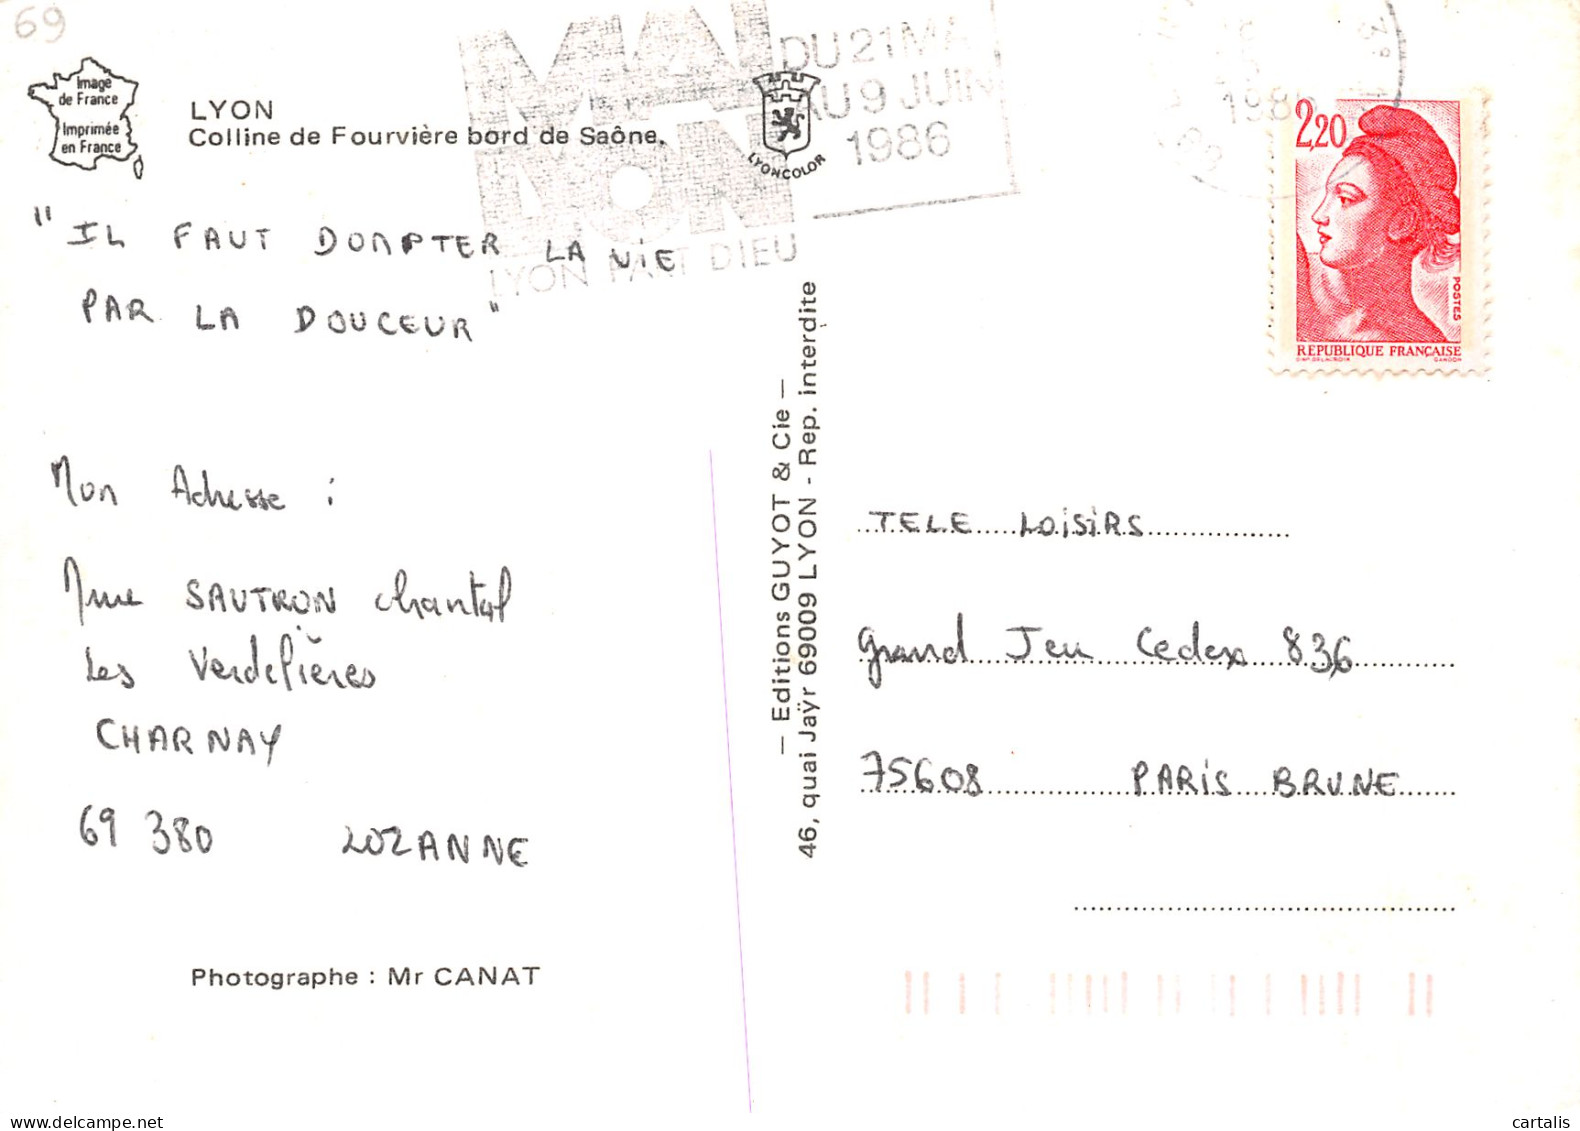 69
Image
de France
Imprimée
en France
LYON
Colline de Fourvière bord de Saône.
MAI
LYON
LYON PART DIEU
DU 21 MAI
AU 9 JUIN
1986
LYONCOLOR
1986
2,20
POSTES
REPUBLIQUE FRANÇAISE
D'AP. DELACROIX GANDON
"IL FAUT DOMPTER LA VIE
PAR LA DOUCEUR"
Mon Adresse :
Mme SAUTRON Chantal
Les Verdelières
CHARNAY
69 380 LOZANNE
Photographe : Mr CANAT
— Editions GUYOT & Cie —
46, quai Jaÿr 69009 LYON - Rep. interdite
TELE LOISIRS
Grand Jeu Cedex 836
75608 PARIS BRUNE
cartalis delcampe.net